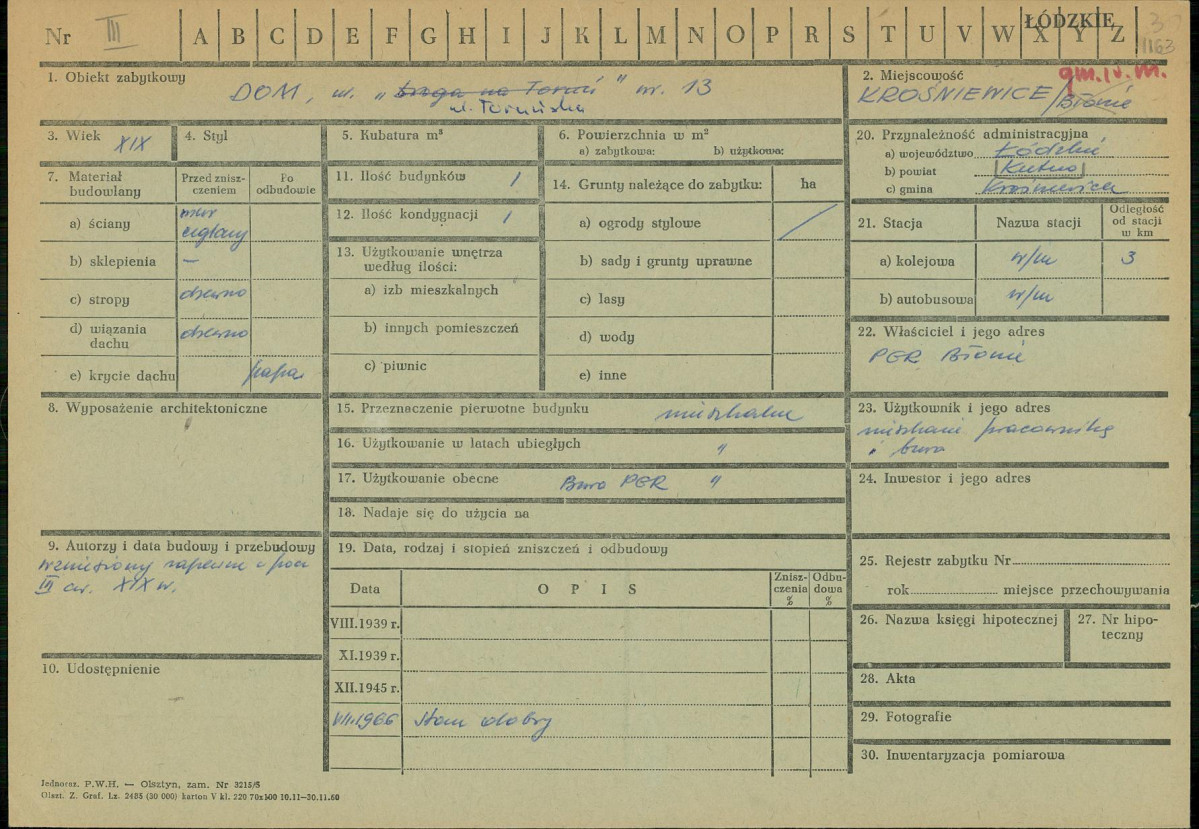 Nr III A B C D E F G H I J K L M N O P R S T U V W X Y Z
ŁÓDZKIE
1163
1. Obiekt zabytkowy
DOM, ul. „Droga na Toruń" nr. 13
ul. Toruńska
2. Miejscowość
gm. iv. m.
KROŚNIEWICE/Błonie
3. Wiek XIX
4. Styl
5. Kubatura m³
6. Powierzchnia w m²
a) zabytkowa: b) użytkowa:
7. Materiał budowlany
Przed zniszczeniem
Po odbudowie
a) ściany
mur ceglany
b) sklepienia —
c) stropy drewno
d) wiązania dachu drewno
e) krycie dachu papa
8. Wyposażenie architektoniczne
9. Autorzy i data budowy i przebudowy
wzniesiony zapewne w pocz
III ćw. XIX w.
10. Udostępnienie
11. Ilość budynków 1
12. Ilość kondygnacji 1
13. Użytkowanie wnętrza
według ilości:
a) izb mieszkalnych
b) innych pomieszczeń
c) piwnic
14. Grunty należące do zabytku: ha
a) ogrody stylowe /
b) sady i grunty uprawne
c) lasy
d) wody
e) inne
15. Przeznaczenie pierwotne budynku mieszkalne
16. Użytkowanie w latach ubiegłych "
17. Użytkowanie obecne Biuro PGR "
18. Nadaje się do użycia na
19. Data, rodzaj i stopień zniszczeń i odbudowy
Data O P I S Zniszczenia % Odbudowa %
VIII.1939 r.
XI.1939 r.
XII.1945 r.
VII.1966 stan dobry
20. Przynależność administracyjna
a) województwo Łódzkie
b) powiat Kutno
c) gmina Krośniewice
21. Stacja Nazwa stacji Odległość od stacji w km
a) kolejowa w/m 3
b) autobusowa w/m
22. Właściciel i jego adres
PGR Błonie
23. Użytkownik i jego adres
mieszkanie pracownika
i biura
24. Inwestor i jego adres
25. Rejestr zabytku Nr
rok miejsce przechowywania
26. Nazwa księgi hipotecznej
27. Nr hipoteczny
28. Akta
29. Fotografie
30. Inwentaryzacja pomiarowa
Jednoraz. P.W.H. — Olsztyn, zam. Nr 3215/5
Olszt. Z. Graf. Lz. 2485 (30 000) karton V kl. 220 70x100 10.11—30.11.60